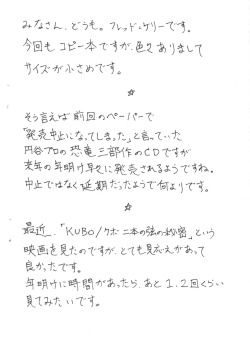 みなさん、どうも。フレッド・ケリーです。
今回も コピー本ですが、色々ありまして
サイズが小さめです。
☆
そう言えば 前回のペーパーで
「発売中止になってしまった」と言っていた
円谷プロの恐竜三部作のCDですが
来年の年明け早々に発売されるようですね。
中止ではなく延期だったようで何よりです。
☆
最近、「KUBO/クボ 二本の弦の秘密」という
映画を見たのですが、とても見応えがあって
良かったです。
年明けに時間があったら、あと1、2回くらい
見てみたいです。